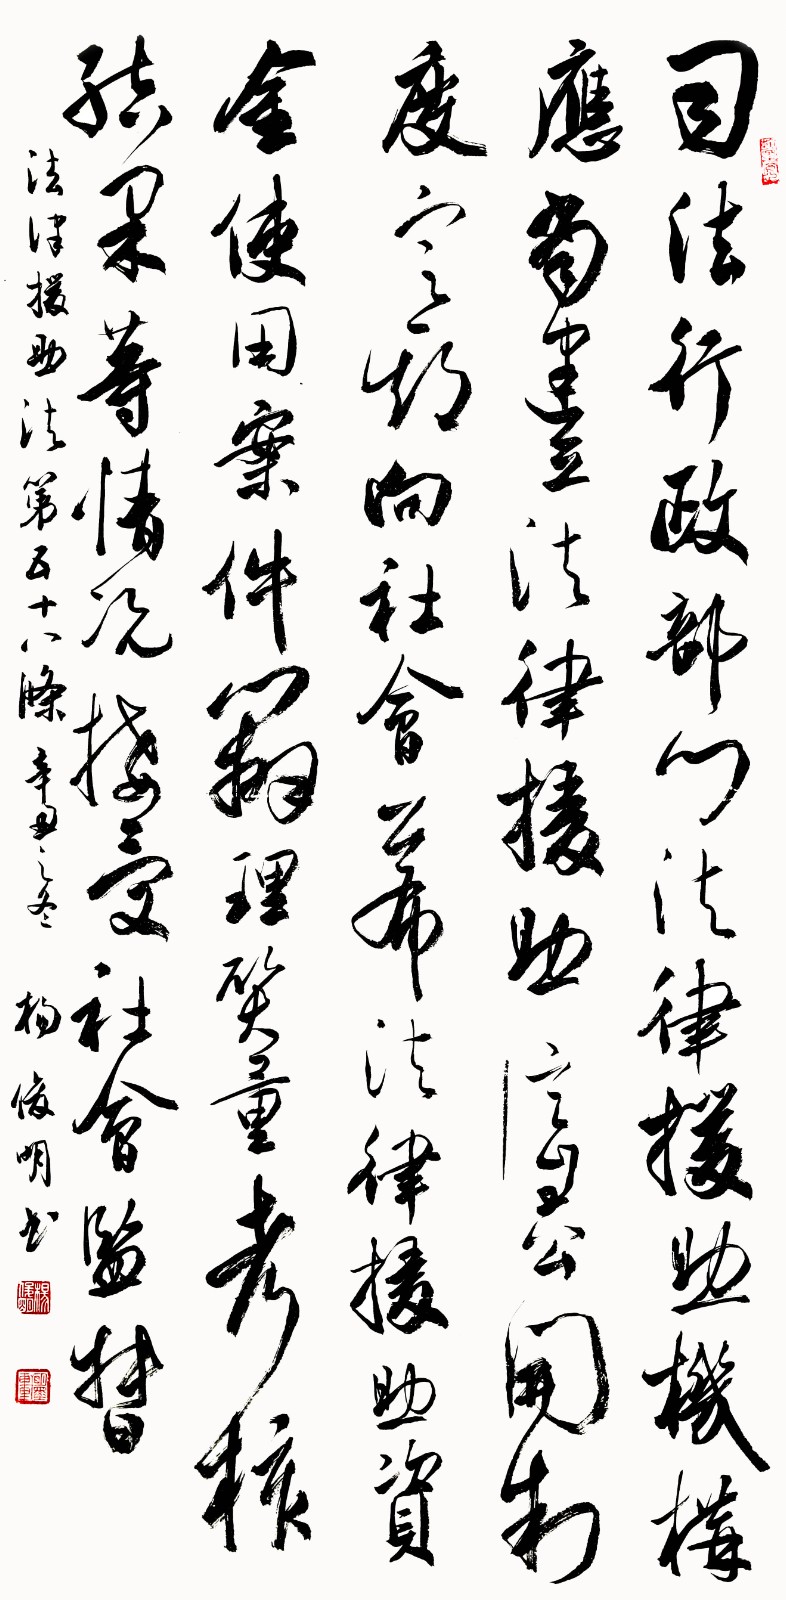 司法行政部門法律援助機構
應當建立法律援助信息公開制
度定期向社會公布法律援助資
金使用案件辦理質量考核
結果等情況接受社會監督
法律援助法第五十八條 辛丑之冬 楊俊明书